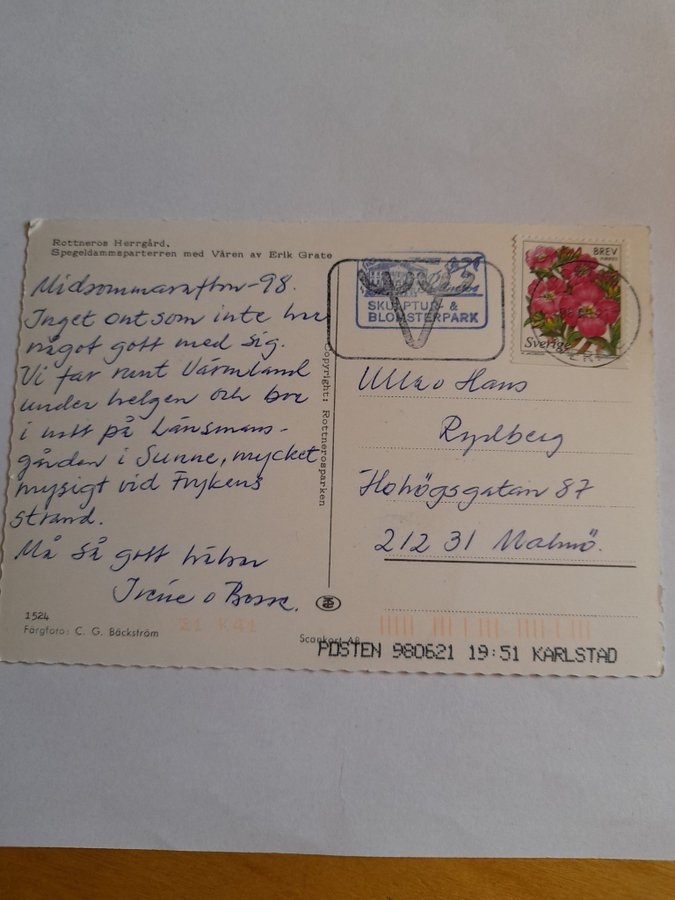 Rottneros Herrgård,
Spegeldammsparterren med Våren av Erik Grate
Midsommarafton -98.
Inget ont som inte har
något gott med sig.
Vi far runt Värmland
under helgen och bor
i natt på Länsmans-
gården i Sunne, mycket
mysigt vid Frykens
strand.
Må så gott hälsar
Irene o Bosse.
1524
Färgfoto: C. G. Bäckström
Copyright: Rottnerosparken
Scankort AB
SKULPTUR- &
BLOMSTERPARK
BREV
Sverige
Ulla o Hans
Rydberg
Hohögsgatan 87
212 31 Malmö.
21 K41
POSTEN 980621 19:51 KARLSTAD